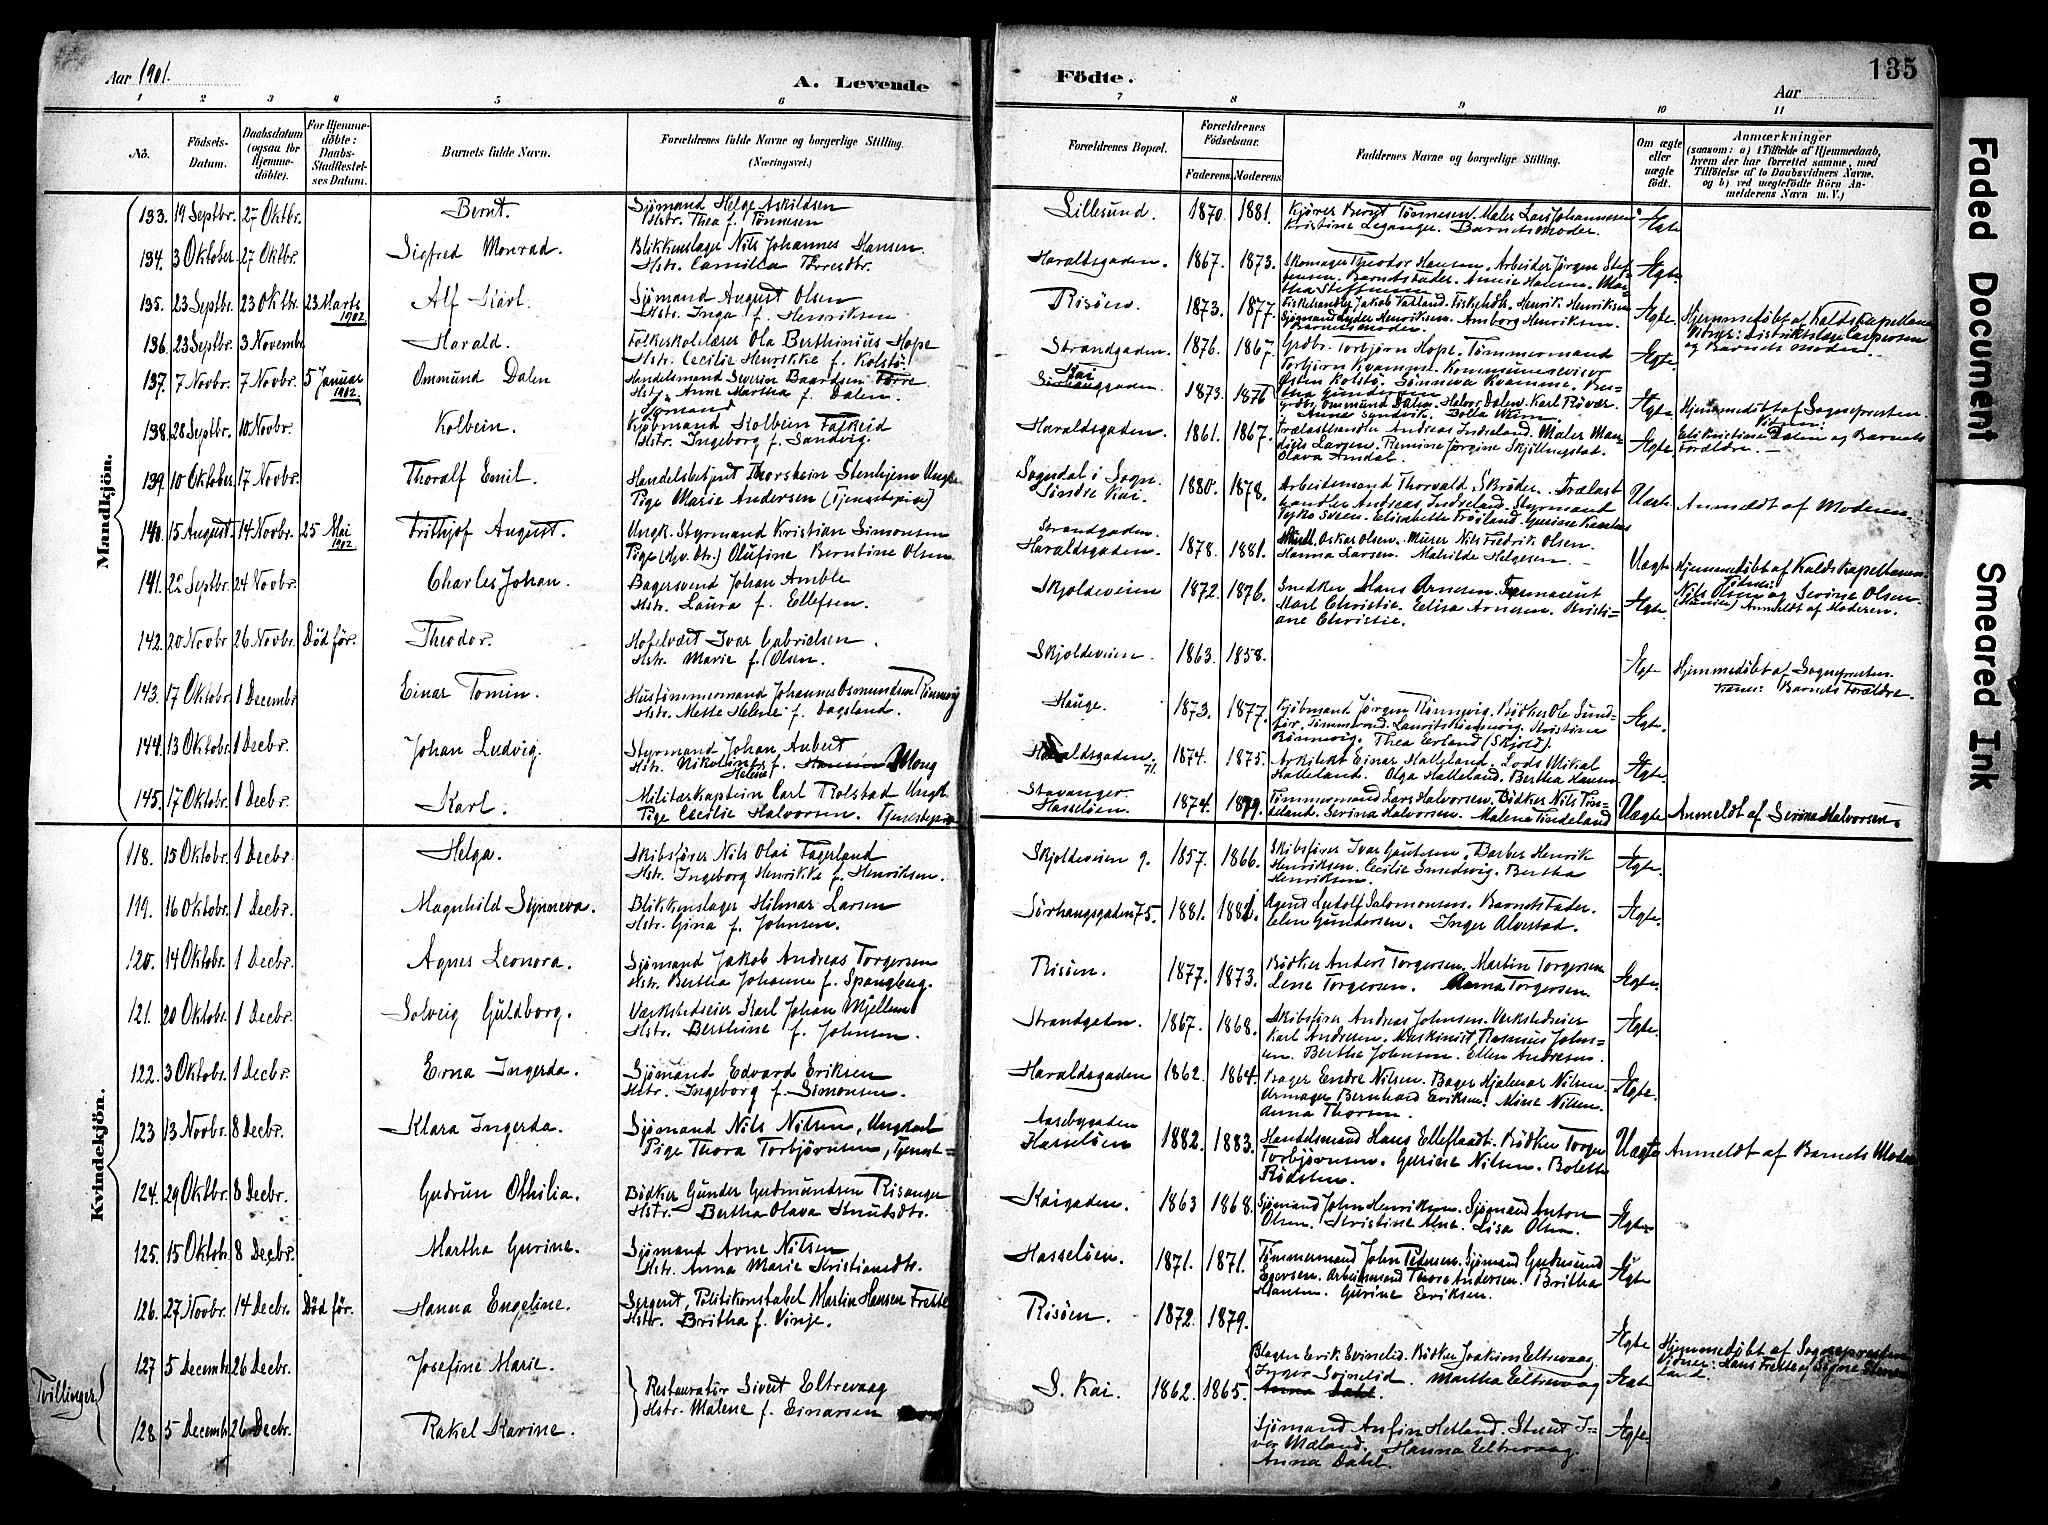 Aar 1901.
A. Levende
Födte.
135
Aar
1 2 3 4 5 6 7 8 9 10 11
No.
Födsels-Datum.
Daabsdatum (ogsaa for Hjemme-döbte).
For Hjemme-döbte: Daabs-Stadfæstel-ses Datum.
Barnets fulde Navn.
Forældrenes fulde Navne og borgerlige Stilling. (Næringsvei.)
Forældrenes Bopæl.
Forældrenes Födselsaar.
Faderens. Moderens.
Faddernes Navne og borgerlige Stilling.
Om ægte eller uægte födt.
Anmærkninger
(saasom: a) i Tilfælde af Hjemmedaab, hvem der har forrettet samme, med Tilföielse af to Daabsvidners Navne. og b) ved uægtefödte Börn An-melderens Navn m. V.)
Mandkjön.
133. 19 Septbr. 27 Oktbr. Bernt. Sjömand Helge Askildsen Hstr. Thea f. Tönnesen Lillesund. 1870. 1881. Kjörer Bernt Tönnesen. Maler Lars Johannesen. Kristine Leganger. Barnets Moder. Ægte
134. 3 Oktober 27 Oktbr. Sigfred Monrad. Blikkenslager Nils Johannes Hansen Hstr. Camilla Torresdtr. Haraldsgaden. 1867. 1873. Skomager Theodor Hansen. Arbeider Jörgen Steffensen. Barnets Fader. Ægte.
135. 23 Septbr. 23 Oktbr. 23 Marts 1902 Alf Karl. Sjömand August Olsen Hstr. Inga f. Henriksen Risöen. 1873. 1877. Henrik Henriksen Amborg Henriksen. Barnets Moder. Ægte. Hjemmedöbt af Kaldskapellanen og Barnets Moder.
136. 23 Septbr. 3 Novembr. Harald. Folkeskolelærer Ola Berthinius Hope Hstr. Cecilie Henrikke f. Kolstö. Strandgaden. 1876. 1867. Grdbr. Torbjörn Hope. Tömmermand Torbjörn Kvamme. Kommunerevisor Östen Kolstö. Sönneva Kvamme. Ægte.
137. 7 Novbr. 7 Novbr. 5 Januar 1902. Ommund Dalen Handelsmand Severin Baardsen Hstr. Anne Martha f. Dalen. 1873. 1876 Ommund Dalen. Halvor Dalen. Karl Rövær. Ægte. Hjemmedöbt af Sognepresten Dalen og Barnets Forældre.
138. 28 Septbr. 10 Novbr. Kolbein. Sjömand Kolbein Falkeid Hstr. Ingeborg f. Sandvig. Haraldsgaden. 1861. 1867. Trælasthandler Andreas Indreland. Maler Larsen. Olava Amdal. Ægte.
139. 10 Oktober 17 Novbr. Thoralf Emil. Handelsbetjent Thorstein Stenhjem Ungk. Pige Marie Andersen (Tjenestepige) Sogndal i Sogn. Söndre Kai. 1880. 1878. Arbeidsmand Thorvald Skröder. Trælasthandler Andreas Indreland. Styrmand Uægte. Anmældt af Moderen.
140. 15 August. 14 Novbr. 25 Mai 1902 Frithjof August. Ungk. Styrmand Kristian Simonsen Pige Olufine Berntine Olsen Strandgaden. Haraldsgaden. 1878. 1881. Oskar Olsen. Murer Nils Fredrik Olsen. Hanna Larsen. Mathilde Helgesen. Uægte Hjemmedöbt af Kaldskapellanen. Nils Olsen og Sevine Olsen Anmeldt af Moderen.
141. 22 Septbr. 24 Novbr. Charles Johan. Bagersvend Johan Amble Hstr. Laura f. Ellefsen. Skjoldeveien 1872. 1876. Snedker Hans Arnesen. Karl Christie. Elisa Arnesen. Kristiane Christie. Ægte.
142. 20 Novbr. 26 Novbr. Död för. Theodor. Hotelvært Ivar Gabrielsen Hstr. Marie f. Olsen. Skjoldeveien. 1863. 1858. Ægte Hjemmedöbt af Sognepresten. Barnets Forældre.
143. 17 Oktobr. 1 Decembr. Einar Tomin. Hustömmermand Johannes Osmundsen Rönnevig Hstr. Mette Helene f. Dagsland. Hauge. 1873. 1877. Kjöbmand Jörgen Rönnevig. Bödker Ole Sundför. Laurits Rönnevig. Kristine Rönnevig. Thea Erland (Skjold). Ægte.
144. 13 Oktobr. 1 Decbr. Johan Ludvig. Styrmand Johan Aubert Hstr. Nikoline Helene f. Moug Haraldsgaden 71. 1874. 1875. Arkitekt Einar Halleland. Lods Mikal Halleland. Olga Halleland. Bertha Hansen Ægte.
145. 17 Oktobr. 1 Decbr. Karl. Militærkaptein Carl Rolstad Ungk. Pige Cecilie Halvorsen. Tjenestepige Stavanger. Hasselöen. 1874. 1879. Tömmermand Lars Halvorsen. Bödker Nils Tindeland. Serina Halvorsen. Malena Tindeland Uægte Anmeldt af Serina Halvorsen.
Kvindekjön.
118. 15 Oktobr. 1 Decbr. Helga. Skibsförer Nils Olai Fagerland Hstr. Ingeborg Henrikke f. Henriksen. Skjoldeveien 9. 1857. 1866. Skibsförer Ivar Gautesen. Barber Henrik Henriksen. Cecilie Smedsvig. Bertha Henriksen. Ægte.
119. 16 Oktobr. 1 Decbr. Magnhild Synneva. Blikkenslager Hilmar Larsen Hstr. Gina f. Johnsen. Sörhaugsgaden 75. 1881. 1881. Agent Ludolf Salomonsen. Barnets Fader. Elen Gundersen. Inger Alvestad. Ægte.
120. 14 Oktobr. 1 Decbr. Agnes Leonora. Sjömand Jakob Andreas Torgersen Hstr. Bertha Johanne f. Spangberg. Risöen. 1877. 1873. Bödker Anders Torgersen. Martin Torgersen Lene Torgersen. Anna Torgersen. Ægte.
121. 20 Oktobr. 1 Decbr. Solveig Guldborg. Værkstedseier Karl Johan Mjellem Hstr. Berthine f. Johnsen. Strandgaden. 1867. 1868. Skibsförer Andreas Johnsen. Værkstedseier Karl Andresen. Maskinist Rasmus Johnsen. Bertha Johnsen. Ellen Andresen. Ægte.
122. 3 Oktobr. 1 Decbr. Erna Ingerda. Sjömand Edvard Eriksen Hstr. Ingeborg f. Simonsen. Haraldsgaden 1862. 1864. Bager Endre Nilsen. Bager Hjalmar Nilsen. Urmager Bernhard Eriksen. Mine Nilsen. Anna Thorsen. Ægte.
123 13 Novbr. 8 Decbr. Klara Ingerda. Sjömand Nils Nilsen, Ungkarl Pige Thora Torbjörnsen, Tjenest= Aasebygaden Hasselöen 1882. 1883. Handelsmand Hans Elleflaadt. Bödker Torger Torbjörnsen. Gurine Nilsen. Bolette Rödsten. Uægte Anmeldt af Barnets Moder
124. 29 Oktbr. 8 Decbr. Gudrun Othilia. Bödker Gunder Gudmundsen Risanger Hstr. Bertha Olava Knudsdtr. Kaigaden. 1863 1868. Sjömand John Henriksen. Sjömand Anton Olsen. Kristine Lisa Olsen. Ægte
125. 15 Oktob. 8 Decbr. Martha Gurine. Sjömand Arne Nilsen Hstr. Anna Marie Kristiansdtr. Hasselöen. 1871. 1871. Tömmermand John Pedersen. Sjömand Gudmund Arbeidsmand Thore Andersen. Britha Hansen. Gurine Eriksen. Ægte
126. 27 Novbr. 14 Decbr. Död för. Hanna Engeline. Sergent, Politikonstabel Martin Hansen Frette Hstr. Britha f. Vinje. Risöen. 1872. 1879. Ægte Hjemmedöbt af Sognepresten Vidner: Hans Frette og Signe
Tvillinger
127 5 Decembr. 26 Decbr. Josefine Marie. Restauratör Sivert Eltrevaag Hstr. Malene f. Einarsen S. Kai. 1862. 1865. Erik Svinelid. Bödker Joakim Eltrevaag. Martha Eltrevaag Ægte
128. 5 Decembr. 26 Decbr. Rakel Karine. Sjömand Anfin Hetland. Student Iver Mæland. Hanna Eltrevaag. Anna Dahl. Ægte.
Faded Document
Smeared Ink